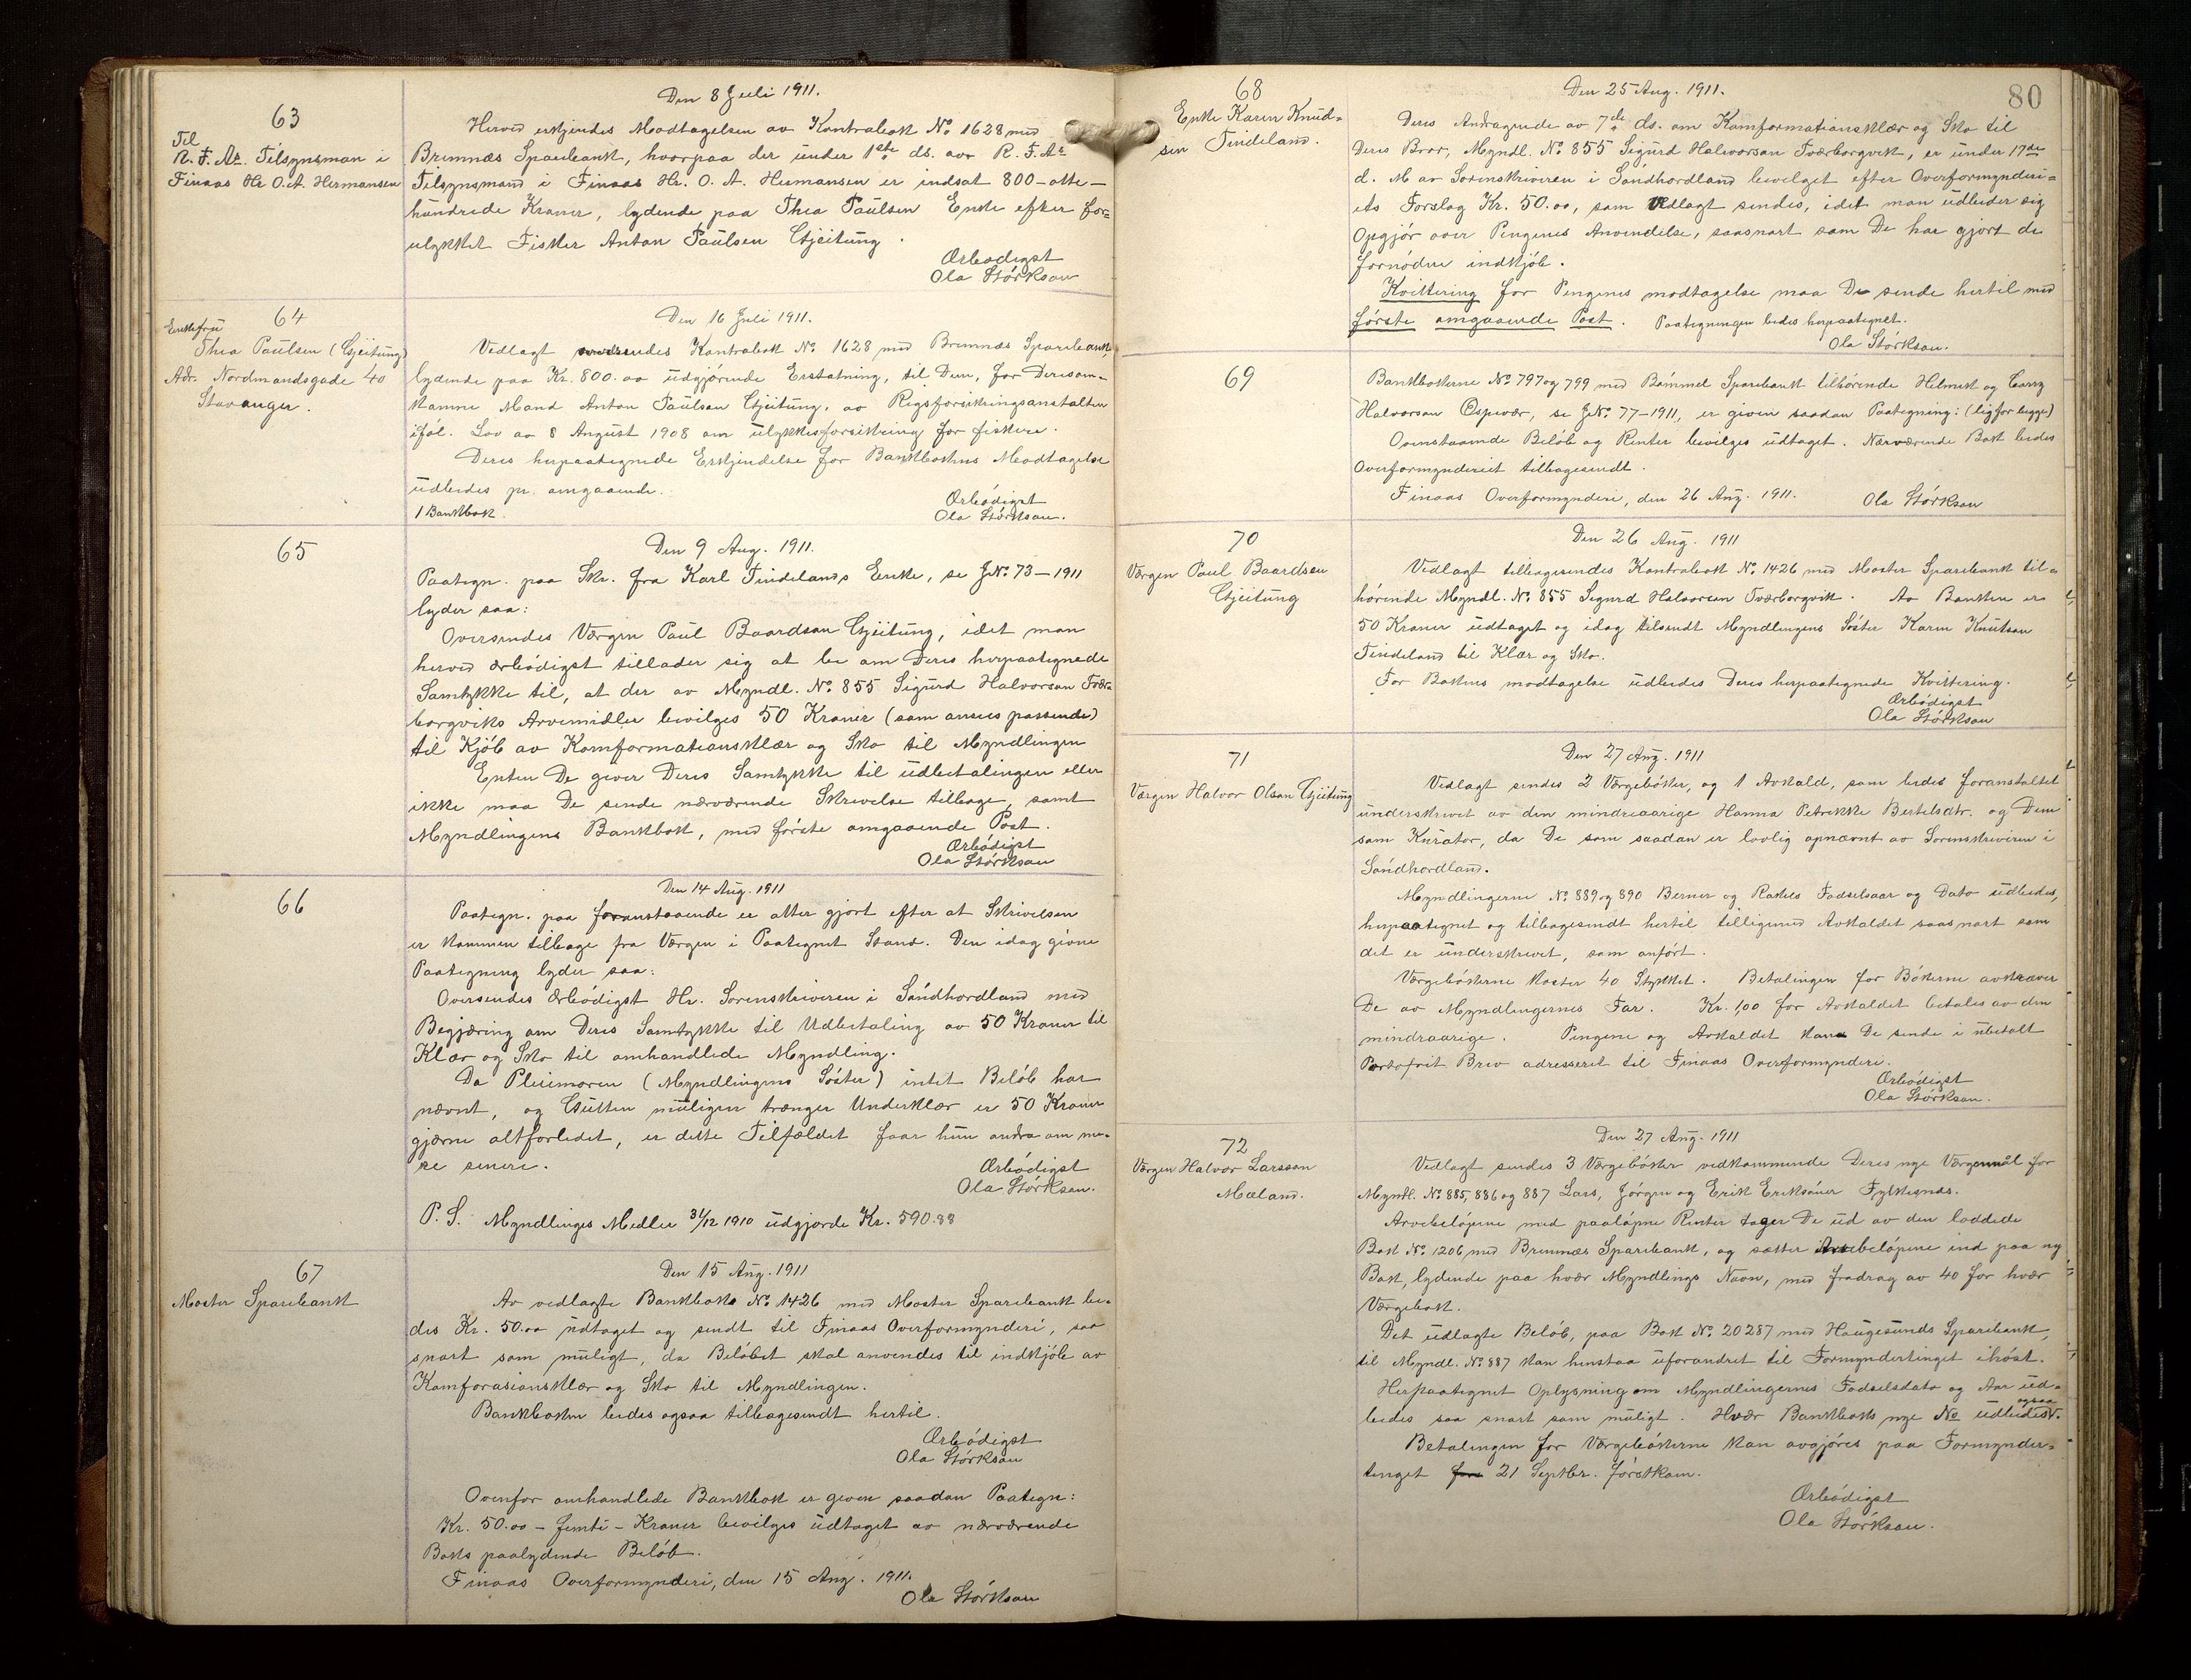 63
Til
R. F. As. Tilsynsman i
Finaas Hr O. A. Hermansen
Den 8 Juli 1911.
Herved erkjendes Modtagelsen av Kontrabok No. 1628 med
Bremnæs Sparebank, hvorpaa der under 1ste ds. av R. F. As
Tilsynsmand i Finaas Hr. O. A. Hermansen er indsat 800 - otte-
hundrede Kroner, lydende paa Thea Paulsen Enke efter for-
ulykket Fisker Anton Paulsen Gjeitung.
Ærbødigst
Ola Størkson
64
Enkefru
Thea Paulsen (Gjeitung)
Adr. Nordmandsgade 40
Stavanger.
Den 16 Juli 1911.
Vedlagt sendes Kontrabok No. 1628 med Bremnæs Sparebank,
lydende paa Kr. 800.00 udgjørende Erstatning, til Dem, for Deres om-
komne Mand Anton Paulsen Gjeitung, av Rigsforsikringsanstalten
iføl. Lov av 8 August 1908 om ulykkesforsikring for fiskere.
Deres herpaategnede Erkjendelse for Bankbokens Modtagelse
udbedes pr. omgaaende.
1 Bankbok.
Ærbødigst
Ola Størkson.
65
Den 9 Aug. 1911.
Paategn. paa Skr. fra Karl Tindelands Enke, se JNo. 73-1911
lyder saa:
Oversendes Værgen Paul Baardson Gjeitung, idet man
herved ærbødigst tillader sig at be om Deres herpaategnede
Samtykke til, at der av Myndl. No. 855 Sigurd Halvorson Tvær-
borgviks Arvemidler bevilges 50 Kroner (som ansees passende)
til Kjøb av Komformationsklær og Sko til Myndlingen
Enten De giver Deres Samtykke til udbetalingen eller
ikke maa De sende nærværende Skrivelse tilbage, samt
Myndlingens Bankbok, med første omgaaende Post.
Ærbødigst
Ola Størkson
66
Den 14 Aug. 1911
Paategn. paa foranstaaende er atter gjort efter at Skrivelsen
er kommen tilbage fra Værgen i Paategnet Stand. Den idag givne
Paategning lyder saa:
Oversendes Ærbødigst Hr. Sorenskriveren i Søndhordland med
Begjæring om Deres Samtykke til Udbetaling av 50 Kroner til
Klær og Sko til omhandlede Myndling.
Da Pleiemoren (Myndlingens Søster) intet Beløb har
nævnt, og Gutten muligen trænger Underklær er 50 Kroner
gjærne altforlidet, er dette Tilfældet faar hun andra om me-
re senere.
Ærbødigst
Ola Størkson.
P. S. Myndlinges Medler 31/12 1910 udgjorde Kr. 590.88
67
Moster Sparebank
Den 15 Aug. 1911
Av vedlagte Bankboks No. 1426 med Moster Sparebank be-
des Kr. 50.00 udtaget og sendt til Finaas Overformynderi, saa
snart som muligt, da Beløbet skal anvendes til indkjøb av
Komforasionsklær og Sko til Myndlingen.
Bankboken bedes ogsaa tilbagesendt hertil.
Ærbødigst
Ola Størkson
Ovenfor omhandlede Bankbok er given saadan Paategn:
Kr. 50.00 - femti - Kroner bevilges udtaget av nærværende
Boks paalydende Beløb.
Finaas Overformynderi, den 15 Aug. 1911.
Ola Størkson
80
68
Enke Karen Knud-
sen Tindeland.
Den 25 Aug. 1911.
Deres Andragende av 7de ds. om Komformationsklær og Sko til
Deres Bror, Myndl. No. 855 Sigurd Halvorson Tværborgvik, er under 17de
d. M av Sorenskriveren i Søndhordland bevilget efter Overformynderi-
ets Forslag Kr. 50.00, som Vedlagt sendes, idet man udbeder sig
Opgjør over Pengenes Anvendelse, saasnart som De har gjort de
fornødne indkjøb.
Kvittering for Pengenes modtagelse maa De sende hertil med
første omgaaende Post. Paategningen bedes herpaategnet.
Ola Størkson.
69
Bankbøkerne No. 797 og 799 med Bømmel Sparebank tilhørende Helmert og Carry
Halvorson Espevær, se JNo. 77-1911, er given saadan Paategning: (lig for begge)
Ovenstaaende Beløb og Renter bevilges udtaget. Nærværende Bok bedes
Overformynderiet tilbagesendt.
Finaas Overformynderi, den 26 Aug. 1911.
Ola Størkson
70
Værgen Paul Baardsen
Gjeitung
Den 26 Aug. 1911
Vedlagt tilbagesendes Kontrabok No. 1426 med Moster Sparebank til-
hørende Myndl. No. 855 Sigurd Halvorsen Tværborgvik. Av Banken er
50 Kroner udtaget og idag tilsendt Myndlingens Søster Karen Knutson
Tindeland til Klær og Sko.
For Bokens modtagelse udbedes Deres herpaategnede Kvittering.
Ærbødigst
Ola Størkson
71
Værgen Halvor Olson Gjeitung
Den 27 Aug. 1911
Vedlagt sendes 2 Værgebøker, og 1 Avkald, som bedes foranstaltet
underskrevet av den mindreaarige Hanna Petrikke Bertelsdtr. og Dem
som Kurator, da De som saadan er lovlig opnævnt av Sorenskriveren i
Søndhordland.
Myndlingerne No. 889 og 890 Berner og Rakels Fødselsaar og Dato udbedes,
herpaategnet og tilbagesendt hertil tilligemed Avkaldet saasnart som
det er underskrevet, som anført.
Værgebøkerne koster 40 Stykket. Betalingen for Bøkerne avkræver
De av Myndlingernes Far. Kr. 1,00 for Avkaldet betales av den
mindraarige. Pengene og Avkaldet kan De sende i ubetalt
Portofrit Brev adresseret til Finaas Overformynderi.
Ærbødigst
Ola Størkson.
72
Værgen Halvor Larsson
Mæland.
Den 27 Aug. 1911
Vedlagt sendes 3 Værgebøker vedkommende Deres nye Værgemål for
Myndl. No. 885, 886 og 887 Lars, Jørgen og Erik Eriksøner Fylkesnes.
Arvebeløpene med paaløpne Renter tager De ud av den loddede
Bok No. 1206 med Bremnæs Sparebank, og sætter Arvebeløpene ind paa ny
Bok, lydende paa hvær Myndlings Navn, med fradrag av 40 for hvær
Værgebok.
Det udlagte Beløb, paa Bok No. 20287 med Haugesunds Sparebank,
til Myndl. No. 887 kan henstaa uforandret til Formyndertinget ihøst.
Herpaategnet Oplysning om Myndlingernes Fødselsdato og Aar ud-
bedes saa snart som muligt. Hvær Bankboks nye No udbedes ogsaa.
Betalingen for Værgebøkerne kan avgjøres paa Formynder-
tinget 21 Septbr. førstkom.
Ærbødigst
Ola Størkson.